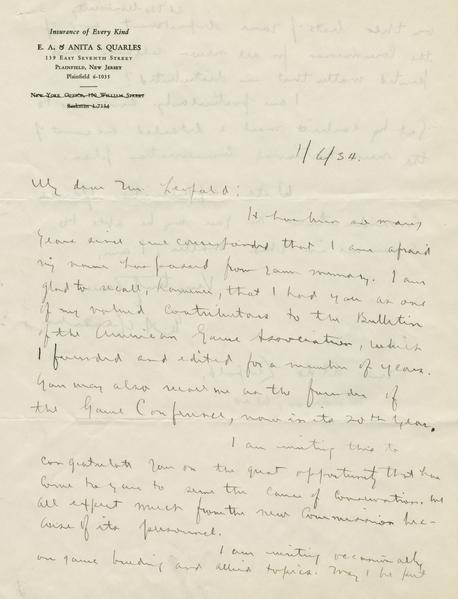 Insurance of Every Kind
E. A. & ANITA S. QUARLES
139 EAST SEVENTH STREET
PLAINFIELD, NEW JERSEY
Plainfield 6-1035
NEW YORK OFFICE, 150 WILLIAM STREET
Beekman
1/6/34.
My dear Mr. Leopold:
It has been so many
years since we corresponded that I am afraid
my name has passed from your memory. I am
glad to recall, however, that I had you as one
of my valued contributors to the Bulletin
of the American Game Association, which
I founded and edited for a number of years.
You may also recall me as the founder of
the Game Conference, now in its 20th year.
I am writing this to
congratulate you on the great opportunity that has
come to you to serve the cause of Conservation. We
all expect much from the new Commission bec-
ause of its personnel.
I am writing occasionally
on game breeding and allied topics. May I be put